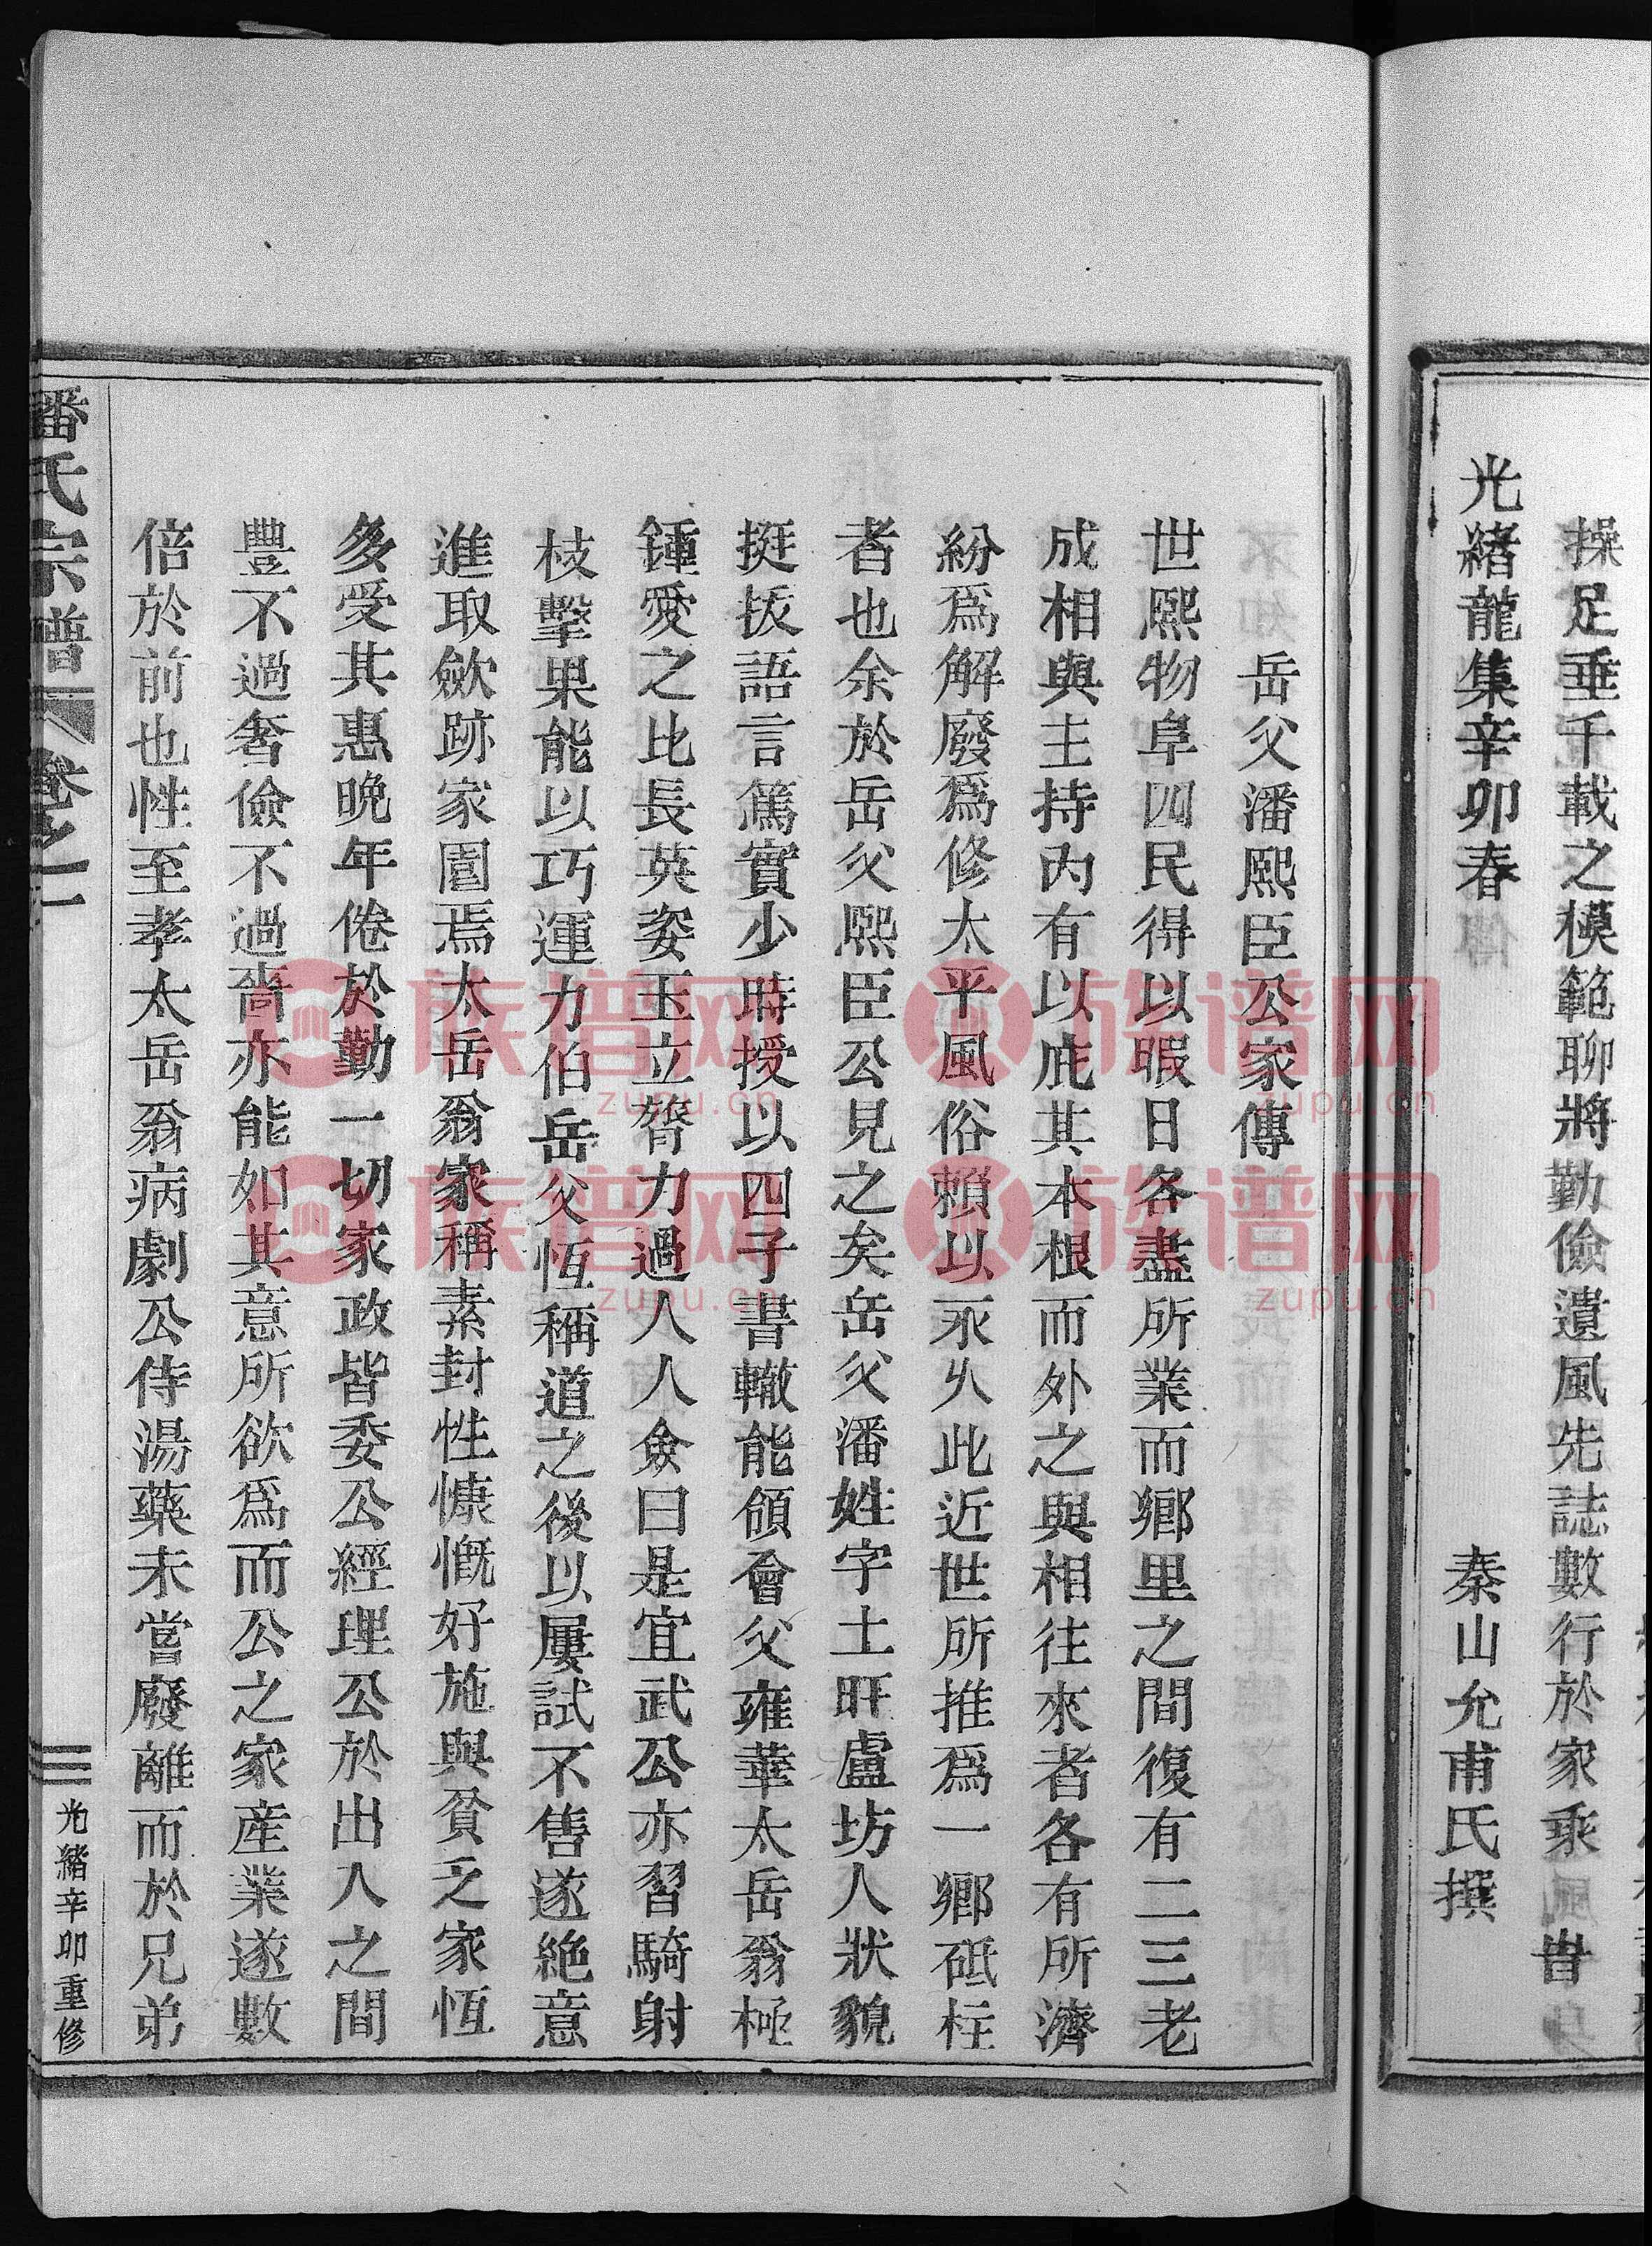 操足垂千載之模範聊將勤儉遺風先誌數行於家乘 旹
光緒龍集辛卯春 秦山允甫氏撰
岳父潘熙臣公家傳
世熙物阜四民得以暇日各盡所業而鄉里之間復有二三老
成相與主持內有以庇其本根而外之與相往來者各有所濟
紛爲解廢爲修太平風俗賴以永久此近世所推爲一鄉砥柱
者也余於岳父熙臣公見之矣岳父潘姓字士旰盧坊人狀貌
挺拔語言篤實少時授以四子書轍能領會父雍華太岳翁極
鍾愛之比長英姿玉立膂力過人人僉曰是宜武公亦習騎射
枝擊果能以巧運力伯岳父恆稱道之後以屢試不售遂絕意
進取歛跡家園焉太岳翁家稱素封性慷慨好施與貧乏之家恆
多受其惠晚年倦於勤一切家政皆委公經理公於出入之間
豐不過奢儉不過嗇亦能如其意所欲爲而公之家産業遂數
倍於前也性至孝太岳翁病劇公侍湯藥未嘗廢離而於兄弟
潘氏宗譜 卷之二
光緒辛卯重修
族谱网
zupu.cn
族谱网
zupu.cn
族谱网
zupu.cn
族谱网
zupu.cn